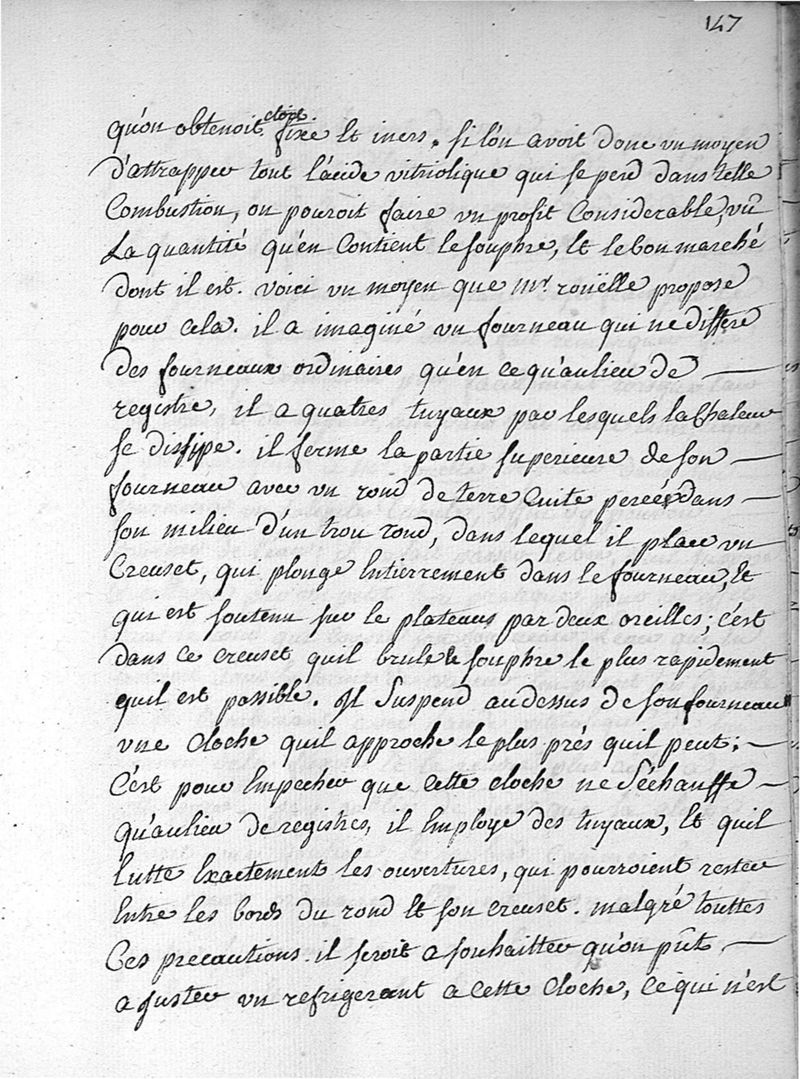 147
qu'on obtenoit étoit fixe et iners. si l'on avoit donc un moyen
d'attrapper tout l'acide vitriolique qui se perd dans telle
Combustion, on pouroit faire un profit Considerable, vû
La quantité qu'en Contient le souphre, et le bon marché
dont il est. voici un moyen que mr. rouëlle propose
pour cela. il a imaginé un fourneau qui ne differe
des fourneaux ordinaires qu'en ce qu'au lieu de
registre, il a quatres tuyaux par lesquels la Chaleur
se dissipe. il ferme la partie superieure de son
fourneau avec un rond de terre Cuite percée dans
son milieu d'un trou rond, dans lequel il place un
Creuset, qui plonge Entierrement dans le fourneau, et
qui est soutenu sur le plateaus par deux oreilles; c'est
dans ce creuset quil brule le souphre le plus rapidement
quil est possible. Il Suspend au dessus de son fourneau
une Cloche quil approche le plus prés quil peut;
C'est pour Empecher que Cette cloche ne S'échauffe
qu'au lieu de registres, il Employe des tuyaux, et quil
lutte Exactement les ouvertures, qui pourroient rester
Entre les bords du rond et son creuset. malgré touttes
Ces precautions il seroit a souhaitter qu'on pût
ajuster un refrigerant a cette Cloche, Ce qui n'est